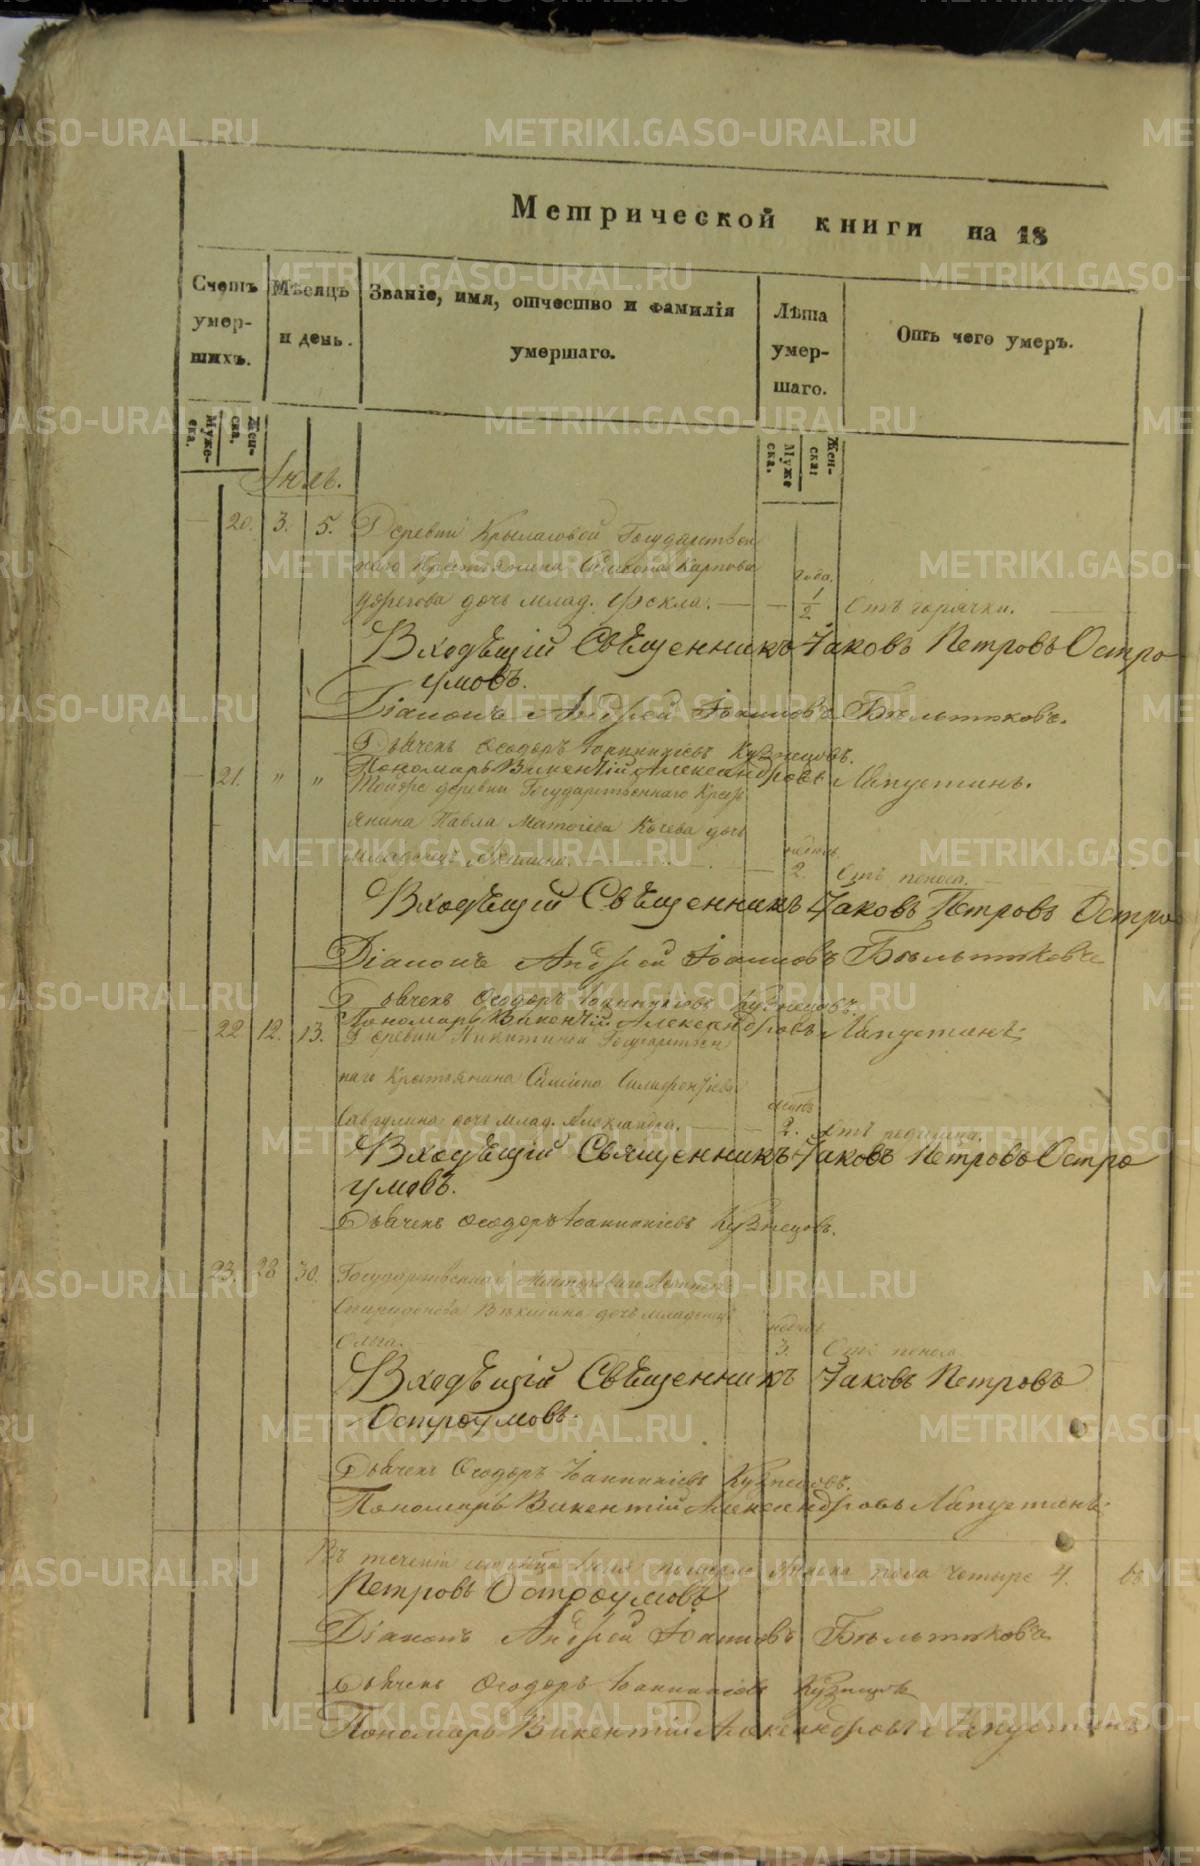 Метрической книги на 18
Счетъ умер- шихъ.
Мѣсяцъ и день.
Званіе, имя, отчество и фамилія умершаго.
Лѣта умер- шаго.
Отъ чего умеръ.
Муже- ска.
Жен- ска.
Муже ска.
Жен- ска:
Іюль.
20. 3. 5. Деревни Крыласовой Государствен
наго Крестьянина Симеона Карпова года.
дочь млад. Фекла. 1/2 Отъ горячки.
Входѣщій Свѣщенникъ Іаковъ Петровъ Остро
умовъ.
Діаконъ Андрей Іоанновъ Бѣльтюковъ.
Дьячекъ Ѳеодоръ Іоанникіевъ Кузнецовъ.
Пономарь Викентій Александровъ Лапустинъ.
21. " " Тойже деревни Государственнаго Кресть
янина Павла Матвѣева Кочева дочь
младенецъ Акилина. 2. Отъ поноса.
Входѣщій Свѣщенникъ Іаковъ Петровъ Остро
Діаконъ Андрей Іоанновъ Бѣльтюковъ
Дьячекъ Ѳеодоръ Іоанникіевъ Кузнецовъ.
Пономарь Викентій Александровъ Лапустинъ.
22. 12. 13. Деревни Никитиной Государствен
наго Крестьянина Симеона
дочь млад. Александра. 2. Отъ родимца.
Входѣщій Священникъ Іаковъ Петровъ Остро
умовъ.
Дьячекъ Ѳеодоръ Іоанникіевъ Кузнецовъ.
23. 28 30. Государственнаго
Спиридонова дочь младенецъ
Ольга. 3. Отъ поноса
Входѣщій Свѣщенникъ Іаковъ Петровъ
Остроумовъ.
Дьячекъ Ѳеодоръ Іоанникіевъ Кузнецовъ.
Пономарь Викентій Александровъ Лапустинъ.
Въ теченіи мѣсяца Іюля умерло Женска пола четыре 4.
Петровъ Остроумовъ
Діаконъ Андрей Іоанновъ Бѣльтюковъ
Дьячекъ Ѳеодоръ Іоанникіевъ Кузнецовъ
Пономарь Викентій Александровъ Лапустинъ
METRIKI.GASO-URAL.RU